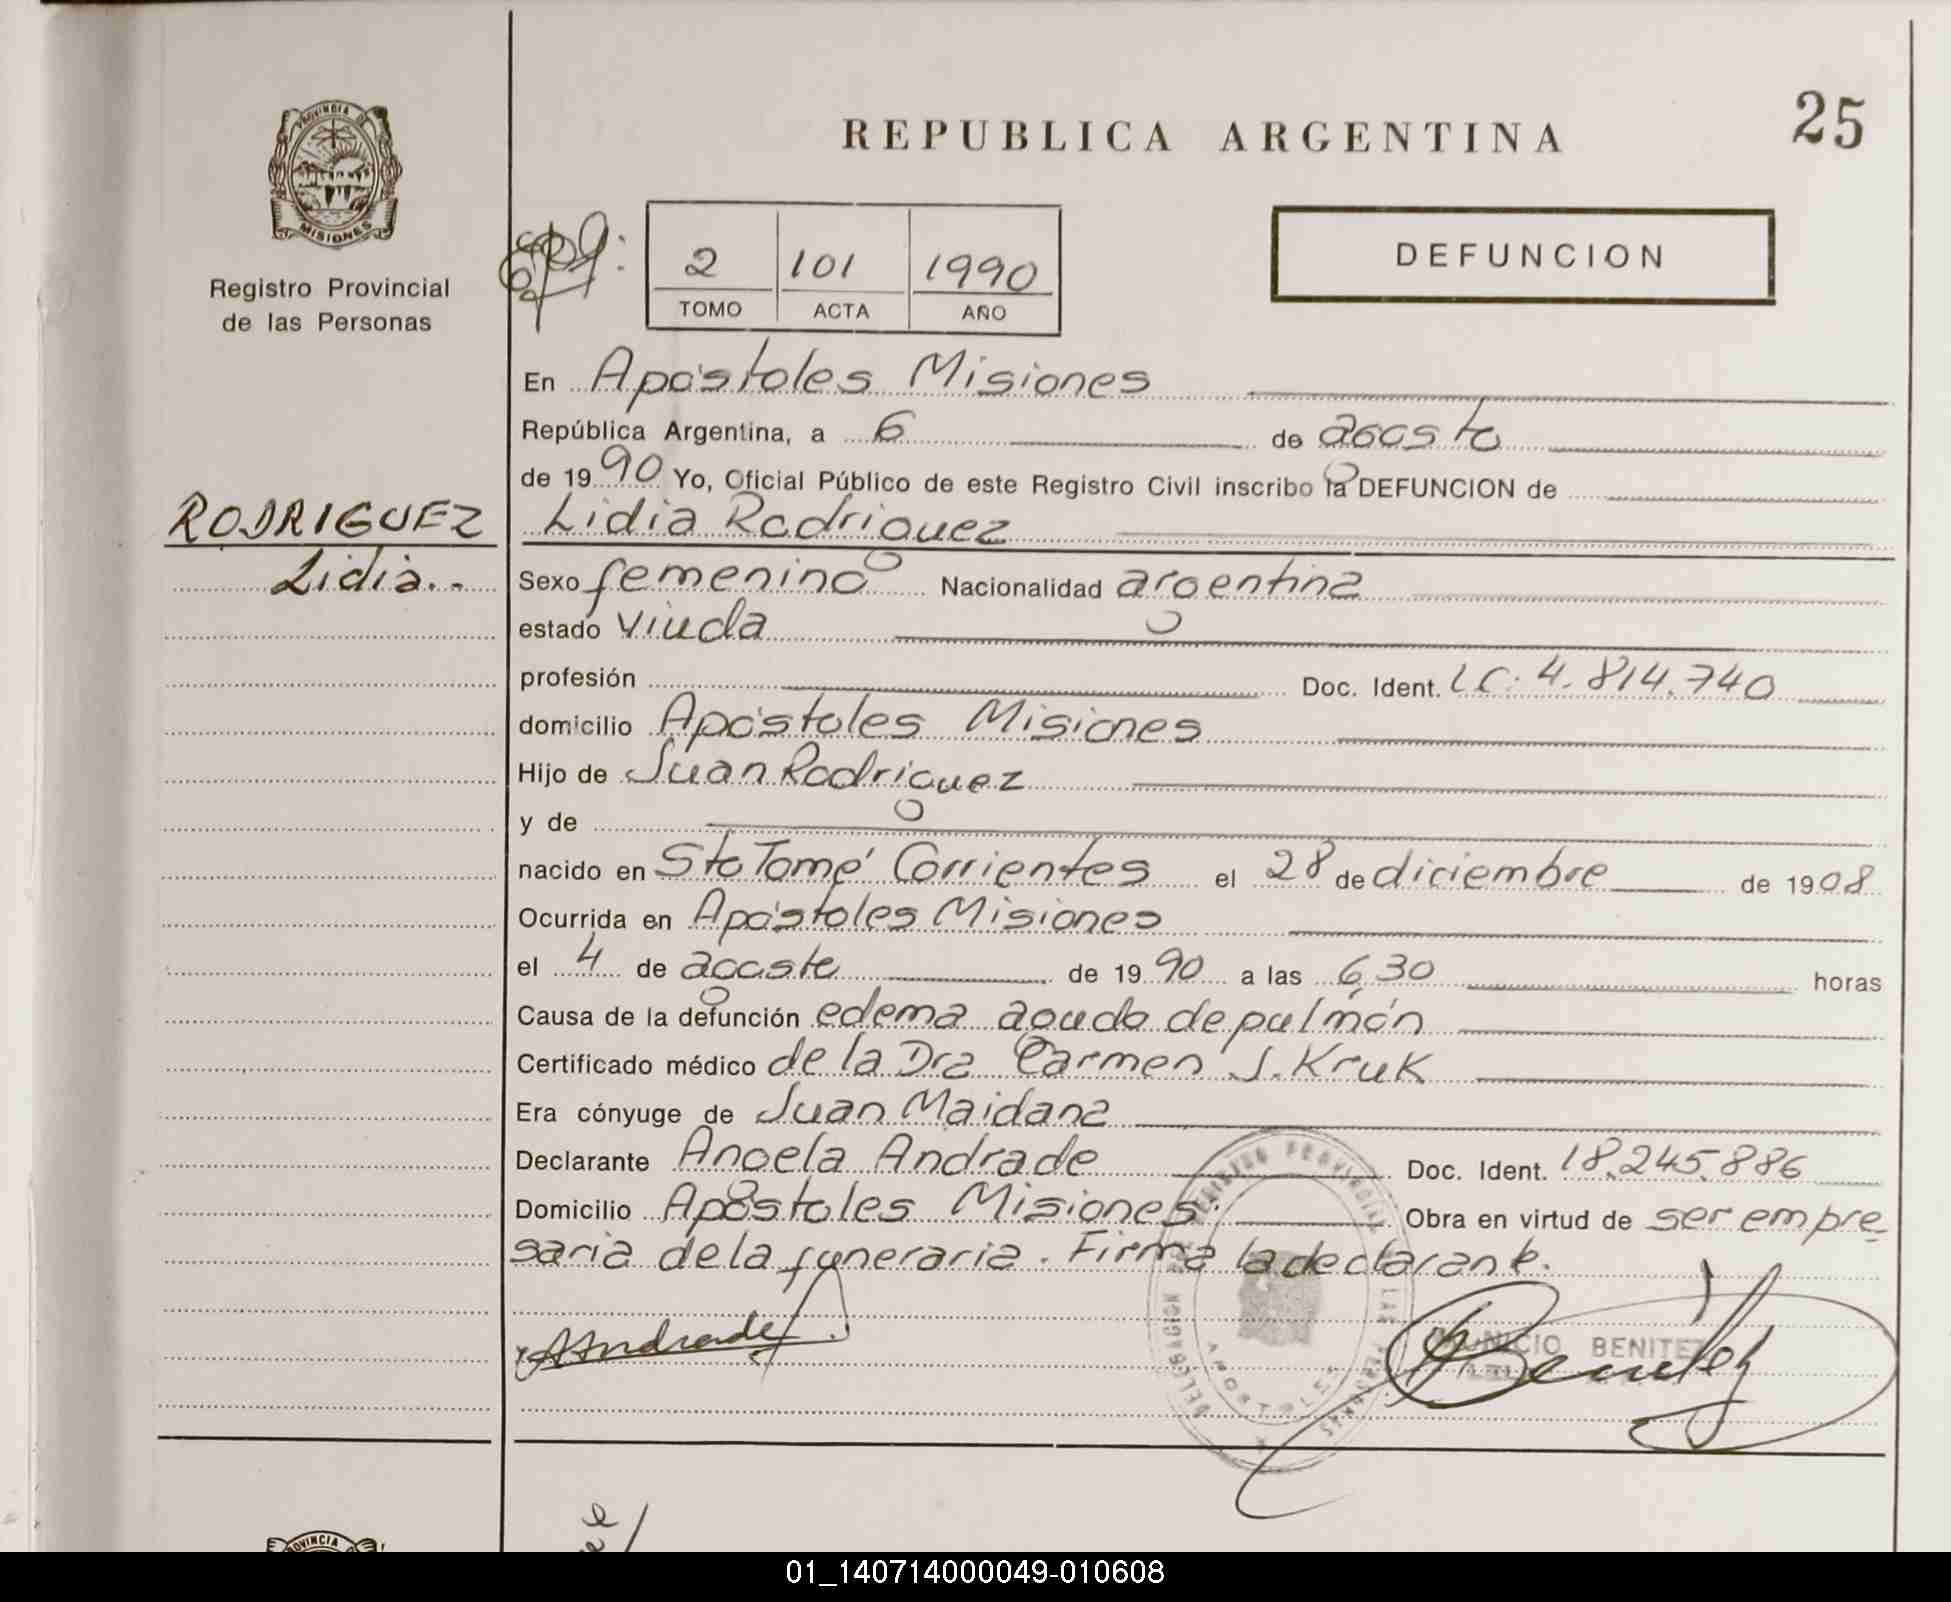 PROVINCIA DE
MISIONES
Registro Provincial
de las Personas
REPUBLICA ARGENTINA
25
2 101 1990
TOMO ACTA AÑO
DEFUNCION
En Apóstoles Misiones
República Argentina, a 6 de agosto
de 1990 Yo, Oficial Público de este Registro Civil inscribo la DEFUNCION de
RODRIGUEZ
Lidia
Lidia Rodriguez
Sexo femenino Nacionalidad argentina
estado viuda
profesión Doc. Ident. LC. 4.814.740
domicilio Apóstoles Misiones
Hijo de Juan Rodriguez
y de
nacido en Sto Tomé Corrientes el 28 de diciembre de 1908
Ocurrida en Apóstoles Misiones
el 4 de agosto de 1990 a las 6,30 horas
Causa de la defunción edema agudo de pulmón
Certificado médico de la Dra Carmen J. Kruk
Era cónyuge de Juan Maidana
Declarante Angela Andrade Doc. Ident. 18.245.886
Domicilio Apóstoles Misiones. Obra en virtud de ser empre-
saria de la funeraria. Firma la declarante.
AAndrade
BENITEZ
DELEGACION REGISTRO PROVINCIAL DE LAS PERSONAS
APOSTOLES
PROVINCIA
01_140714000049-010608